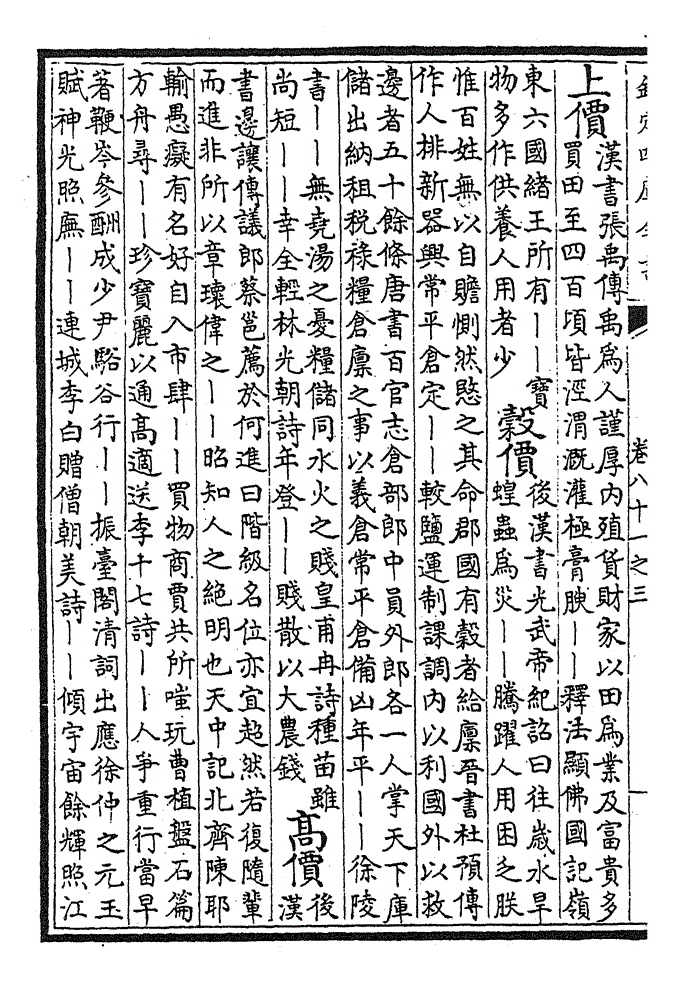 欽定四庫全書
卷八十一之三
上價
漢書張禹傳禹為人謹厚內殖貨財家以田為業及富貴多
買田至四百頃皆涇渭溉灌極膏腴丨丨釋法顯佛國記嶺
東六國緒王所有丨丨寶
物多作供養人用者少
穀價
後漢書光武帝紀詔曰往歲水旱
蝗蟲為災丨丨騰躍人用困乏朕
惟百姓無以自贍惻然愍之其命郡國有穀者給廩晉書杜預傳
作人排新器興常平倉定丨丨較鹽運制課調內以利國外以救
邊者五十餘條唐書百官志倉部郎中員外郎各一人掌天下庫
儲出納租税祿糧倉廩之事以義倉常平倉備凶年平丨丨徐陵
書丨丨無堯湯之憂糧儲同水火之賤皇甫冉詩種苗雖
尚短丨丨幸全輕林光朝詩年登丨丨賤散以大農錢
高價
後
漢
書邊讓傳議郎蔡邕薦於何進曰階級名位亦宜超然若復隨輩
而進非所以章瓌偉之丨丨昭知人之絕明也天中記北齊陳耶
輸愚癡有名好自入市肆丨丨買物商賈共所嗤玩曹植盤石篇
方舟尋丨丨珍寶麗以通高適送李十七詩丨丨人爭重行當早
著鞭岑參酬成少尹駱谷行丨丨振臺閣清詞出應徐仲之元玉
賦神光照廡丨丨連城李白贈僧朝美詩丨丨傾宇宙餘輝照江